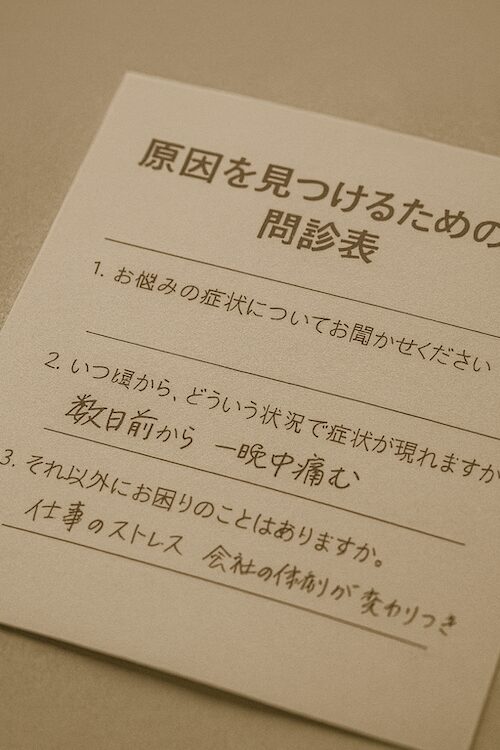 原因を見つけるための
問診表
1. お悩みの症状についてお聞かせください
2. いつ頃から、どういう状況で症状が現れますか
数日前から 一晩中痛む
3. それ以外にお困りのことはありますか。
仕事のストレス 会社の体制が変わりつき